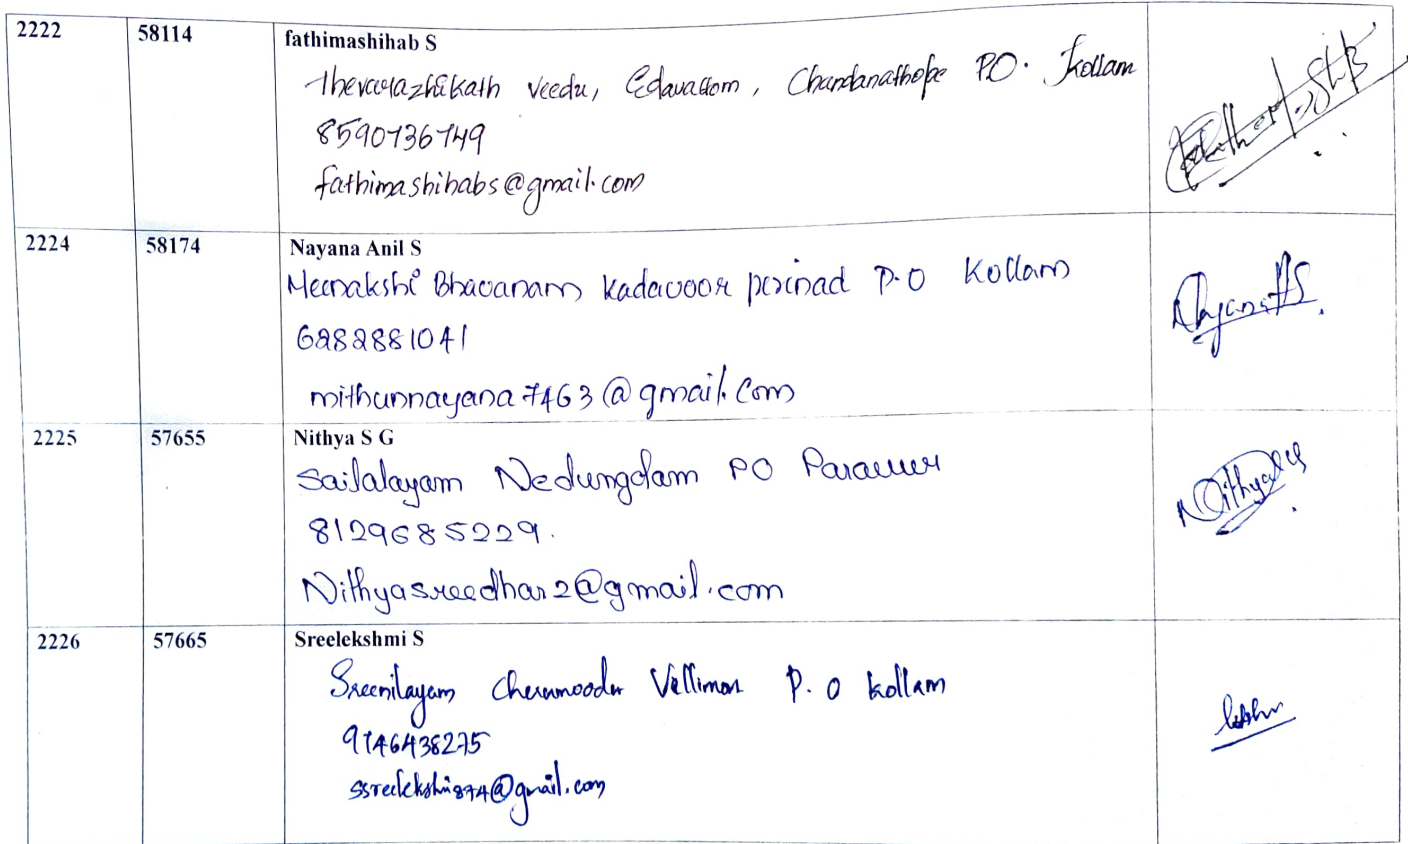 2222 58114 fathimashihab S
Thevarazhikath veedu, Edavattom, Chandanathope P.O. Kollam
8590736749
fathimashihabs@gmail.com
2224 58174 Nayana Anil S
Meenakshi Bhavanam Kadavoor perinad P.O Kollam
6282881041
mithunnayana7463@gmail.com
2225 57655 Nithya S G
Sailalayam Nedungolam PO Paravur
8129685229.
Nithyasreedhar2@gmail.com
2226 57665 Sreelekshmi S
Sreenilayam Cherumoodu Vellimon P.O Kollam
9746438275